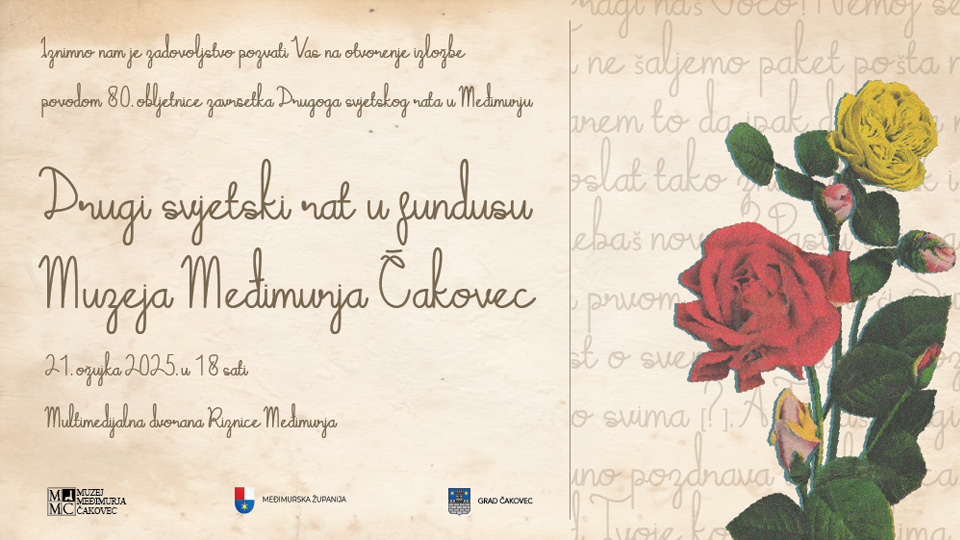 Iznimno nam je zadovoljstvo pozvati Vas na otvorenje izložbe
povodom 80. obljetnice završetka Drugoga svjetskog rata u Međimurju
Drugi svjetski rat u fundusu
Muzeja Međimurja Čakovec
21. ožujka 2025. u 18 sati
Multimedijalna dvorana Riznice Međimurja
MMMC MUZEJ
MEĐIMURJA
ČAKOVEC
MEĐIMURSKA ŽUPANIJA
GRAD ČAKOVEC
naš Voćo! Nemoj
ne šaljemo paket pošta
to da ipak
oslat tako
nov
prvom
st o
o svima [?].
pozdrava
Tvoje